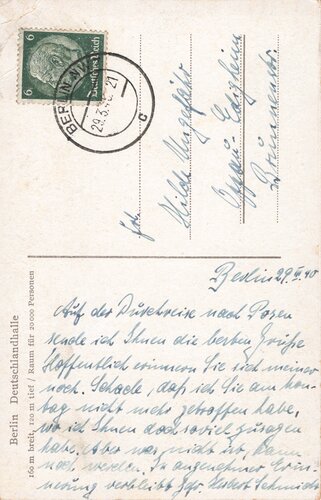 6
6
Deutsches Reich
BERLIN
29.3.40.21
c
Frl.
Hilde
Oppau - Edigheim
Brunnenstr.
Berlin 29.III.40
Auf der Durchreise nach Posen
sende ich Ihnen die besten Grüße
Hoffentlich erinnern Sie sich meiner
noch. Schade, daß ich Sie am Mon-
tag nicht mehr getroffen habe,
wo ich Ihnen doch soviel zusagen
habe. Aber was nicht ist, kann
noch werden. In angenehmer Erin-
nerung verbleibt Ihr Herbert Schmidt
Berlin Deutschlandhalle
160 m breit, 120 m tief / Raum für 20000 Personen